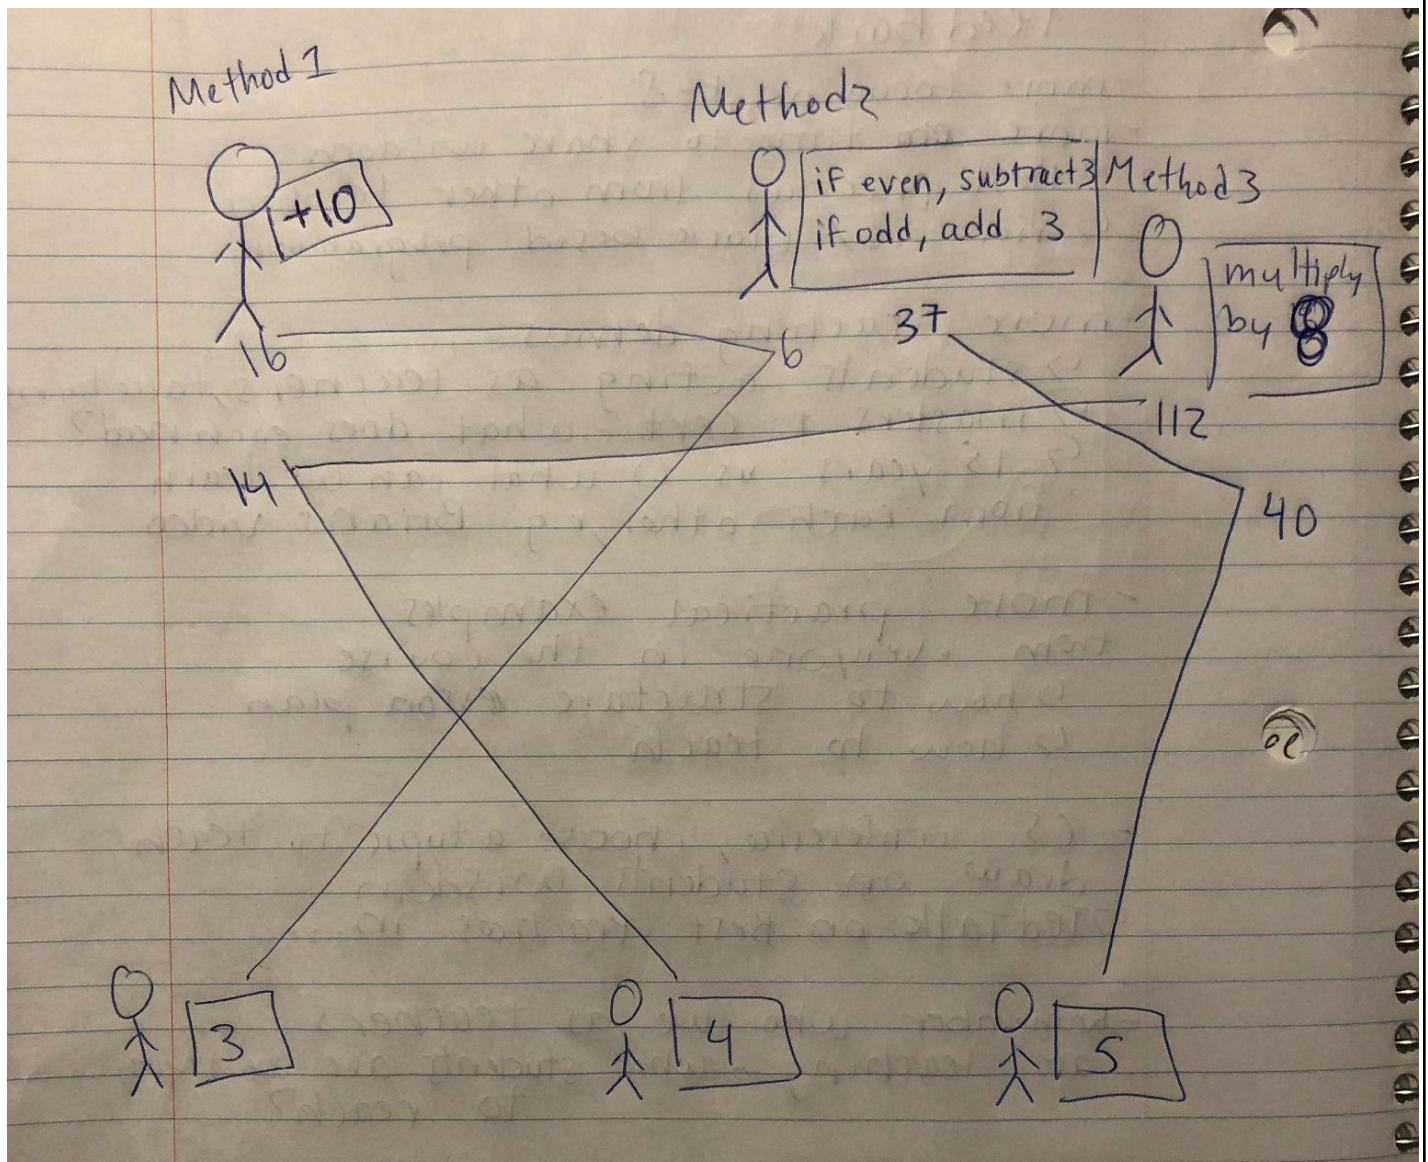 Method 1
Method 2
+10
if even, subtract 3
if odd, add 3
Method 3
multiply
by 8
16
6
37
112
14
40
3
4
5